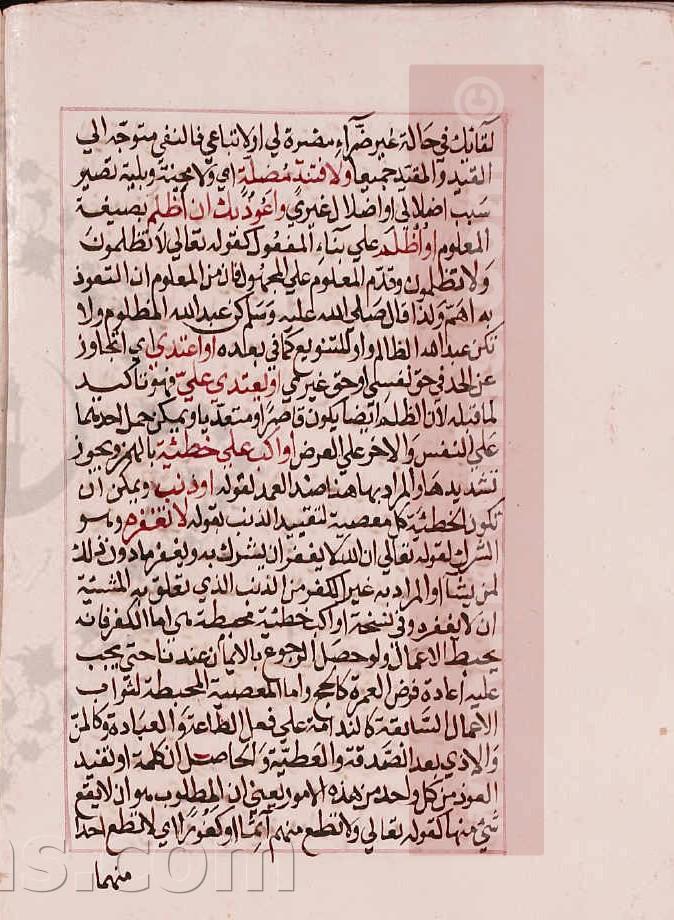 لقائك في حالة غير ضراء مضرة لي او لاتباعي فالنفي متوجه الي
القيد والمقيد جميعا ولا فتنة مضلة اي ولا محنة وبلية تصير
سبب اضلالي او اضلال غيري واعوذ بك ان اظلم بصيغة
المعلوم او اظلم علي بناء المفعول كقوله تعالي لا تظلمون
ولا تظلمون وقدم المعلوم علي المجهول فان من المعلوم ان التعوذ
به اهم ولذا قال صلي الله عليه وسلم كن عبد الله المظلوم ولا
تكن عبد الله الظالم واو للتنويع كما في بعده او اعتدي اي اتجاوز
عن الحد في حق نفسي او حق غيري او يعتدي علي فهو تاكيد
لما قبله لان الظلم ايضا يكون قاصرا او متعديا ويمكن حمل احدهما
علي النفس والاخر علي العرض او اكسب خطيئة بالهمز ويجوز
تشديدها والمراد بها هنا ضد العمد لقوله او ذنبا ويمكن ان
تكون الخطيئة كل معصية لتقييد الذنب بقوله لا تغفره وهو
الشرك لقوله تعالي ان الله لا يغفر ان يشرك به ويغفر ما دون ذلك
لمن يشا او المراد به غير الكفر من الذنب الذي تعلق به المشئية
ان لا يغفره وفي نسخة او اكسب خطئية محبطة هي اما الكفر فانه
يحبط الاعمال ولو حصل الرجوع بالايمان عندنا حتي يجب
عليه اعادة فرض العمرة كالحج واما المعصية المحبطة لثواب
الاعمال السابقة كالندامة علي فعل الطاعة والعبادة وكالمن
والاذي بعد الصدقة والعطية والحاصل ان كلمة او تفيد
العوذ من كل واحد من هذه الامور يعني ان المطلوب هو ان لا يقع
شي منها كقوله تعالي ولا تطع منهم آثما او كفورا اي لا تطع احدا
منهما
ns.com